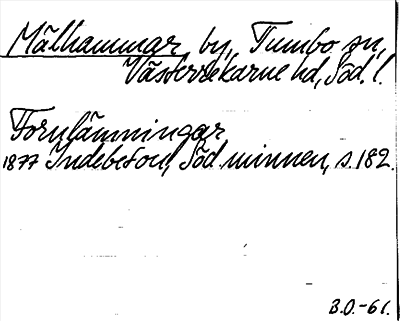 Mälhammar, by, Tumbo sn,
Västerrekarne hd, Söd. l.
Fornlämningar
1877 Indebetou, Söd. minnen, s. 182.
B.O.-61.